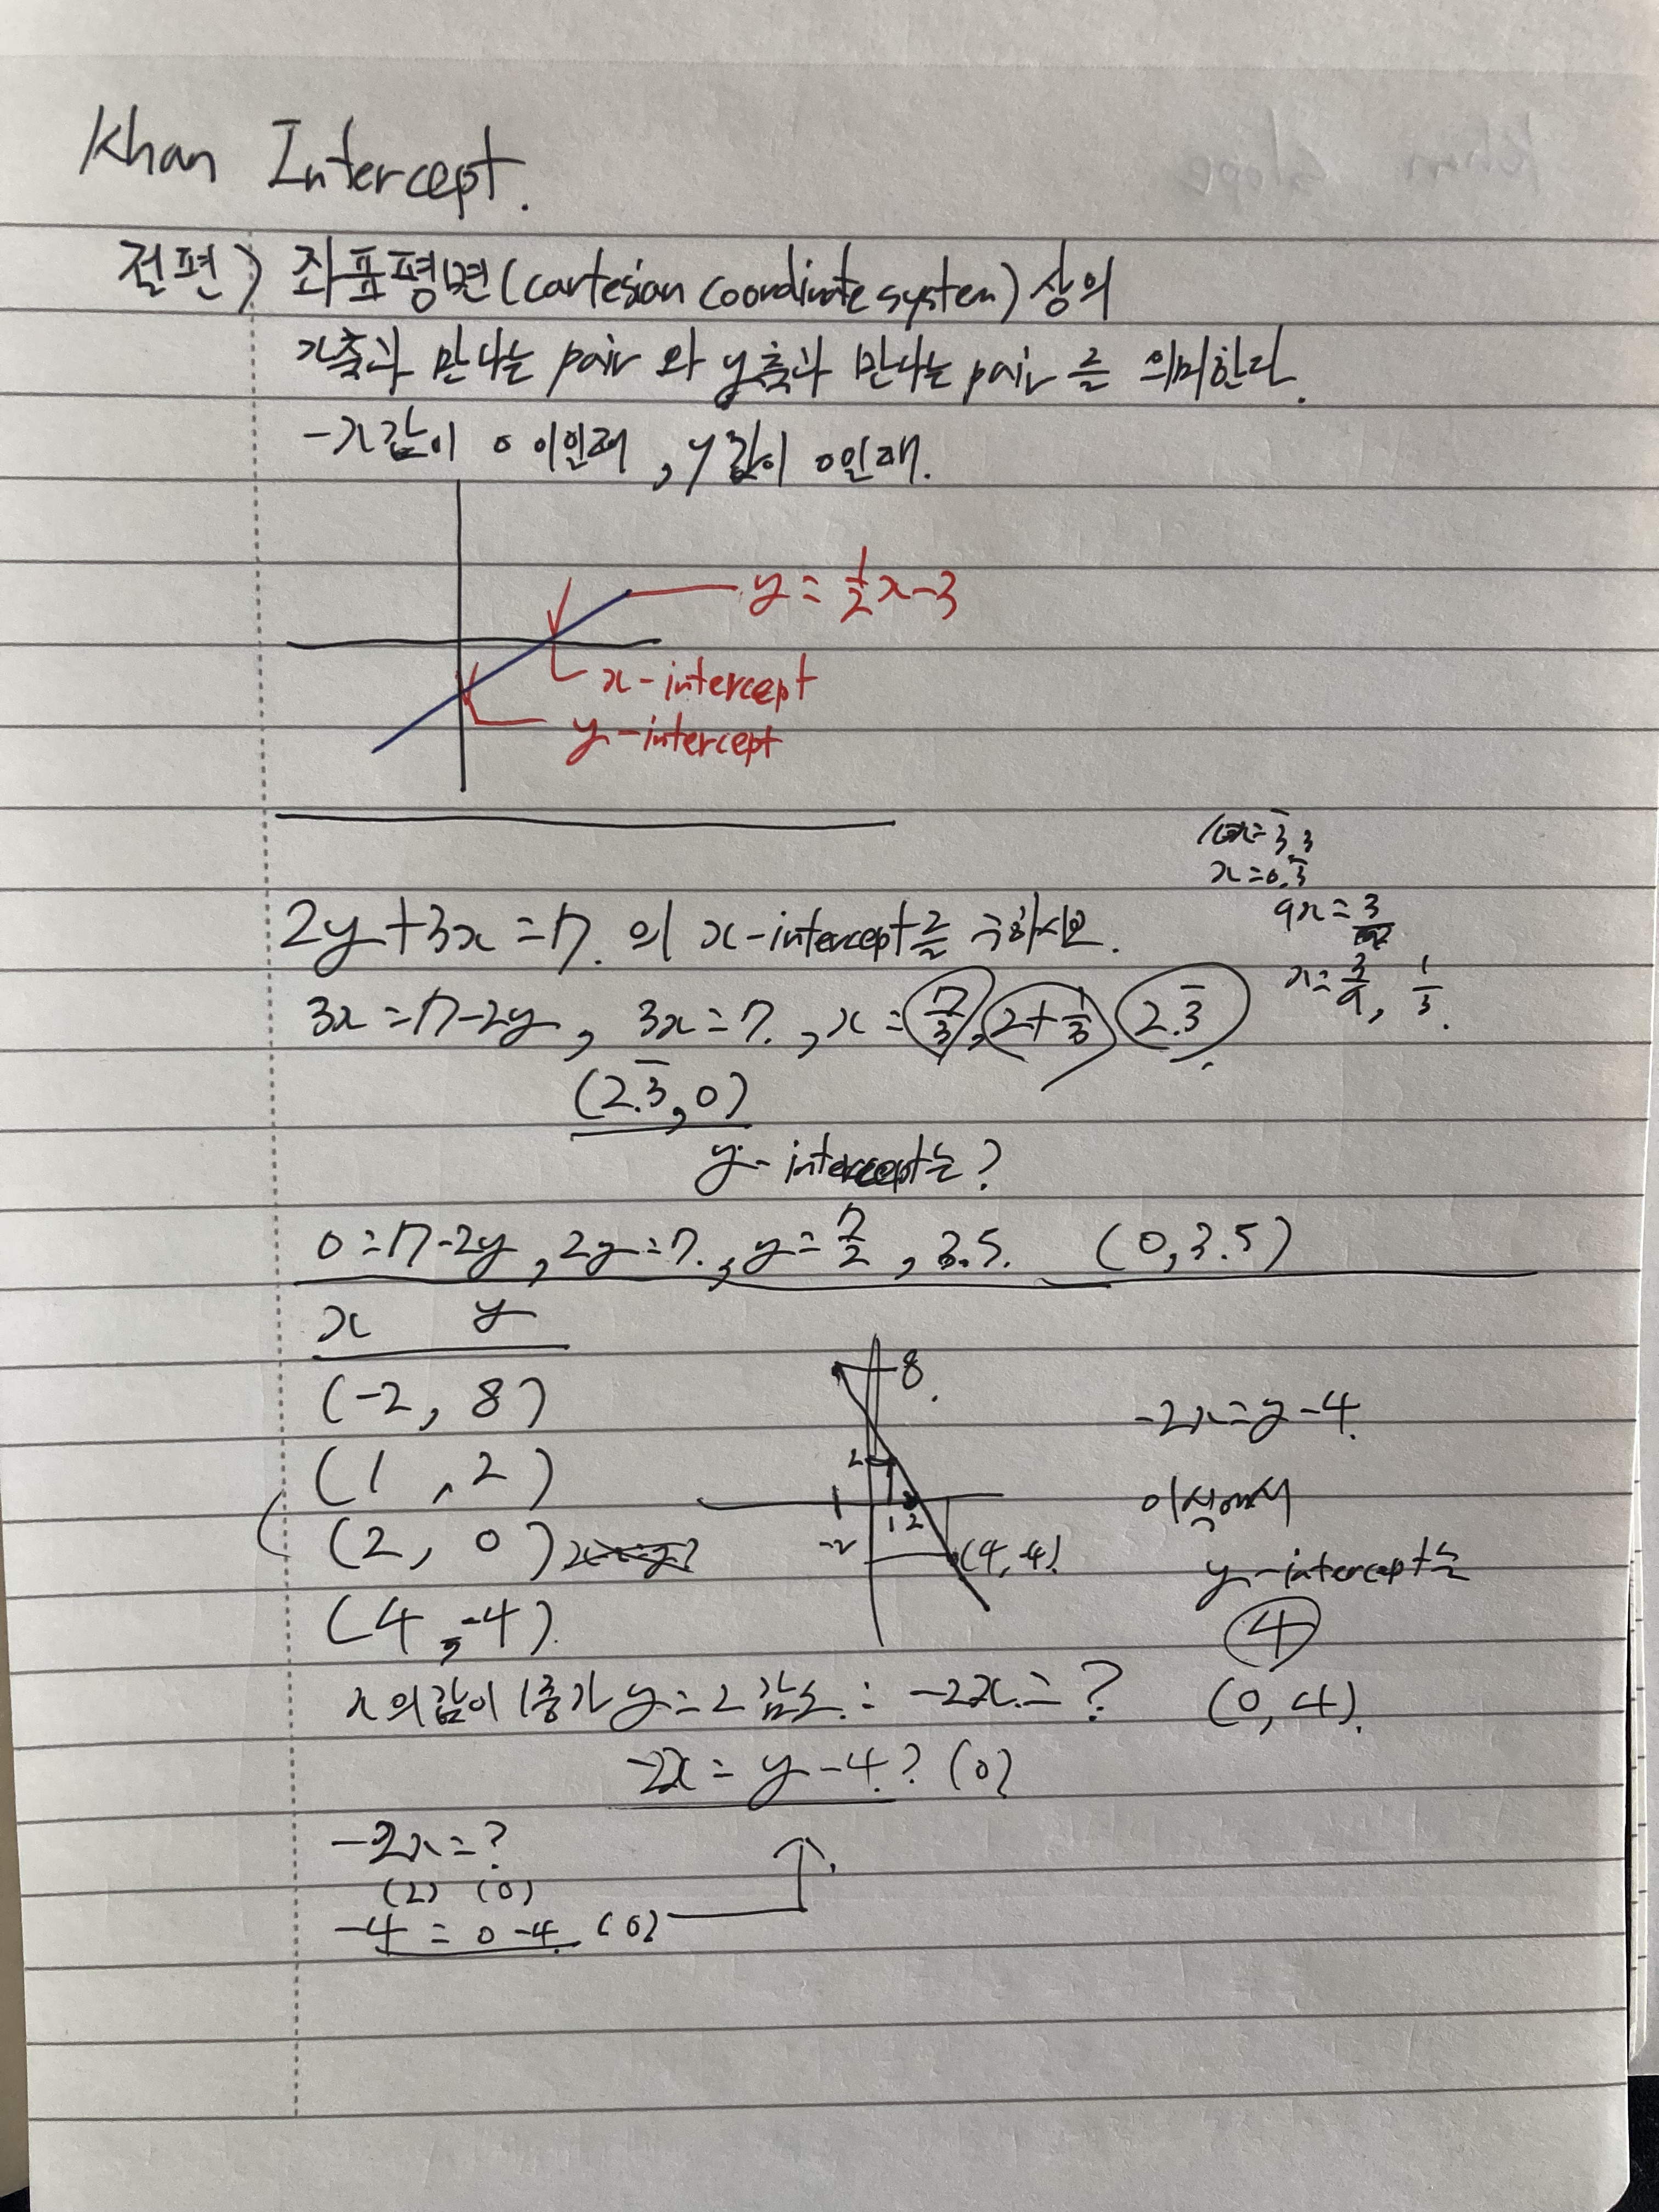 Khan Intercept.
절편) 좌표평면(cartesian coordinate system)상의
x축과 만나는 pair 와 y축과 만나는 pair 를 의미한다.
-x값이 0 이인때, y값이 0인때.
y = 1/2 x-3
x-intercept
y-intercept
x=0.3̅
9x=3
x=3/9, 1/3.
2y+3x=7. 의 x-intercept를 구하시오.
3x=7-2y, 3x=7, x=7/3, 2+1/3, 2.3̅.
(2.3̅, 0)
y-intercept는?
0=7-2y, 2y=7, y=7/2, 3.5. (0, 3.5)
x y
(-2, 8)
(1, 2)
(2, 0)
(4, -4).
8.
2
1 2
-2
(4, -4)
-2x=y-4.
이식에서
y-intercept는
4
(0, 4).
x의값이 1증가 y는 2 감소: -2x=?
-2x=y-4? (0)
-2x=?
(2) (0)
-4=0-4. (0)